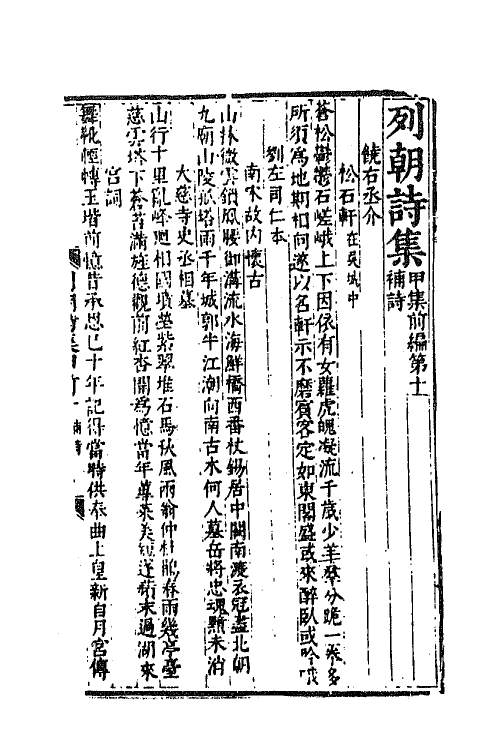 列朝詩集甲集前編第十一
補詩
饒右丞介
松石軒在吳城中
蒼松鬱鬱石嵯峨上下因依有女蘿虎魄凝流千歲少羊羣分跪一拳多
所須爲地期相向遂以名軒示不磨賓客定如東閣盛或來醉臥或吟哦
劉左司仁本
南宋故內懷古
山林微雲鎖鳳腰御溝流水海鮮橋西番杖錫居中閫南渡衣冠盡北朝
九廟山陵孤塔雨千年城郭半江潮向南古木何人墓岳將忠魂黯未消
大慈寺史丞相墓
山行十里亂峰迴相國墳塋紫翠堆石馬秋風雨翁仲杜鵑春雨幾亭臺
慈雲塔下蒼苔滿旌德觀前紅杏開爲憶當年 過湖來
宮詞
舞靴 轉玉堦前憶昔承恩已十年記得當時供奉曲上皇新自月宮傳